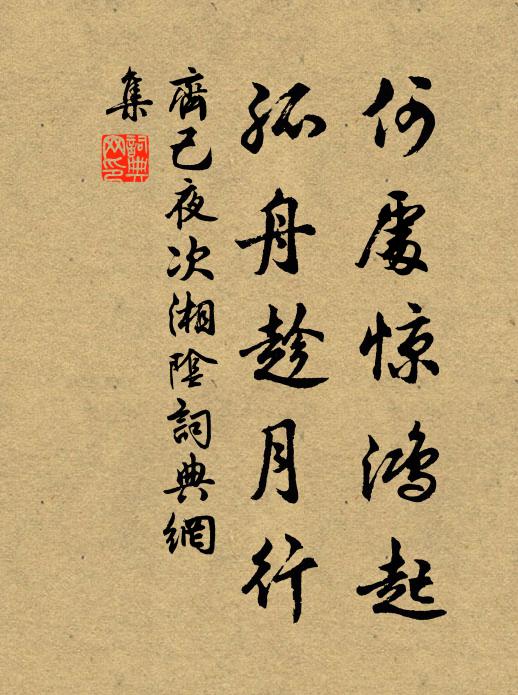 何處惊鴻起
孤舟趁月行
齊己夜次湘陰詞典網
集
詞典
网印